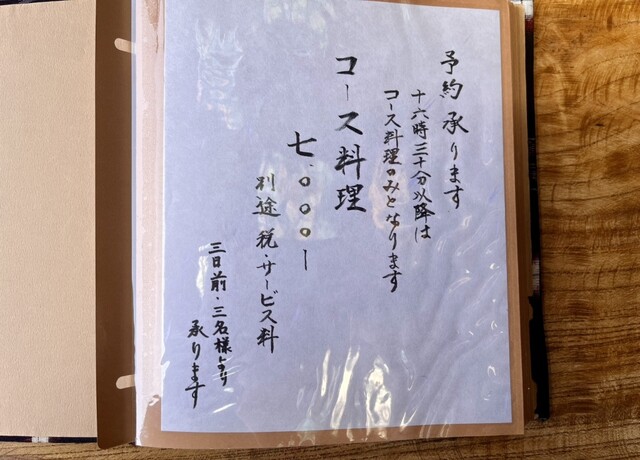 予約承ります
十六時三十分以降は
コース料理のみとなります
コース料理
七、〇〇〇ー
別途 税・サービス料
三日前・三名様より
承ります